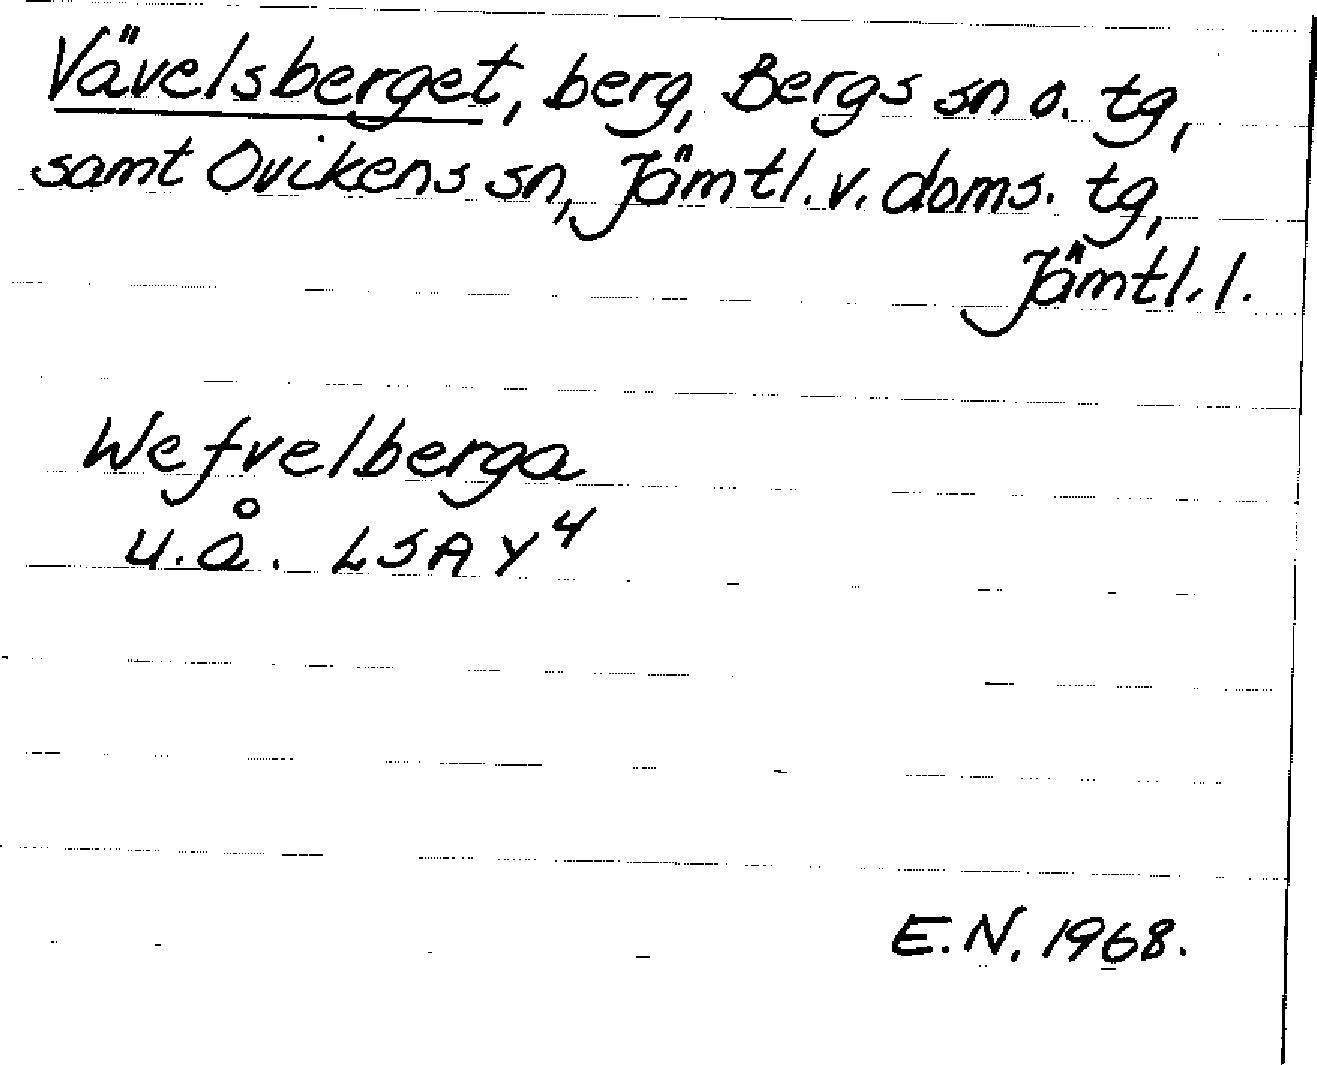 Vävelsberget, berg, Bergs sn o. tg,
samt Ovikens sn, Jämtl. v. doms. tg,
Jämtl. l.
Wefvelberga
u.å. LSA Y4
E.N. 1968.